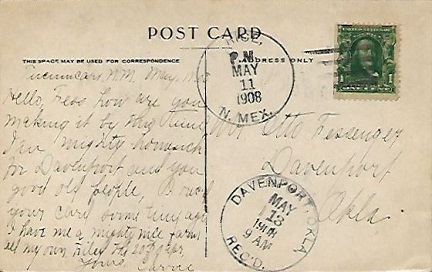 POST CARD
THIS SPACE MAY BE USED FOR CORRESPONDENCE
ADDRESS ONLY
P.M.
MAY
11
1908
N. MEX.
Tucumcari, N.M. May,
Hello, Fess how are you
making it by this time
I am mighty homesick
for Davenport and you
good old people, I rec'd
your card some time ago
I have me a mighty nice farm
all my own.
Yours Carrie
Mr Otto Fessenger
Davenport
Okla.
DAVENPORT, OKLA.
MAY
13
9 AM
REC'D.